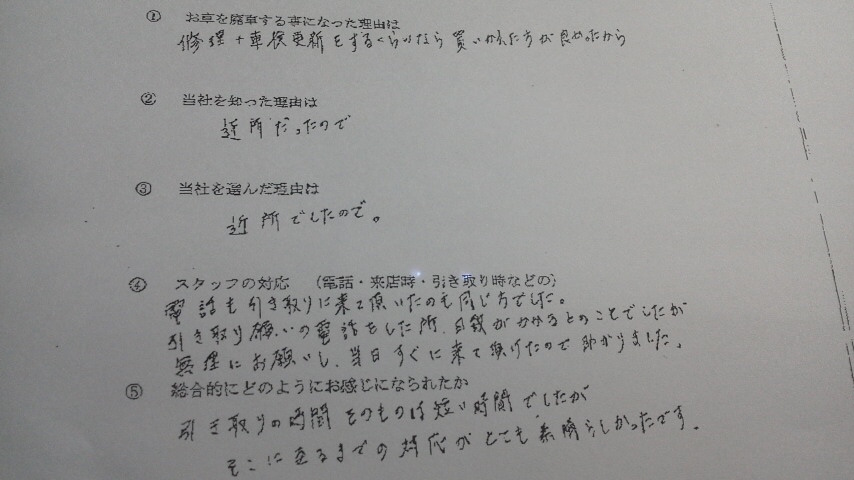 ① お車を廃車する事になった理由は
修理+車検更新をするくらいなら買いかえた方が良かったから
② 当社を知った理由は
近所だったので
③ 当社を選んだ理由は
近所でしたので。
④ スタッフの対応 (電話・来店時・引き取り時などの)
電話も引き取りに来て頂いたのも同じ方でした。
引き取り願いの電話をした所、日数がかかるとのことでしたが
無理にお願いし、当日すぐに来て頂けたので助かりました。
⑤ 総合的にどのようにお感じになられたか
引き取りの時間そのものは短い時間でしたが
そこに至るまでの対応がとても素晴らしかったです。